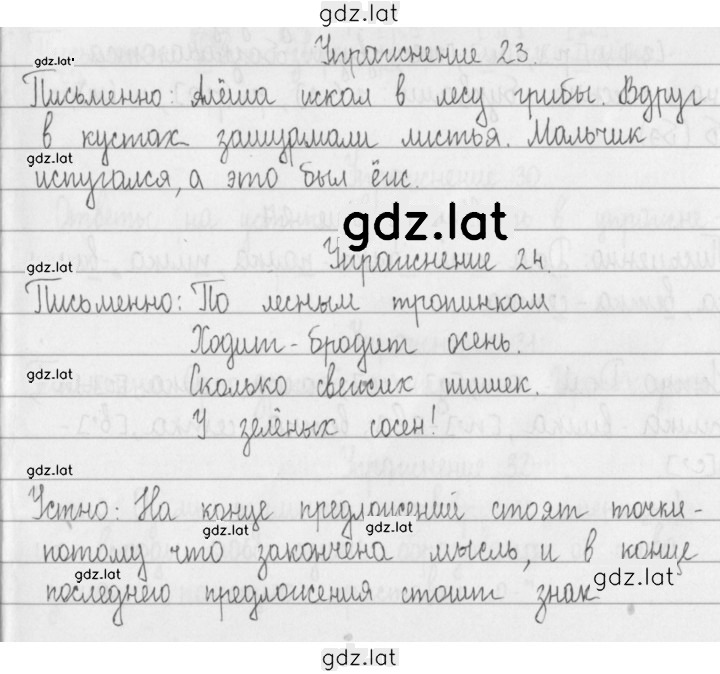 gdz.lat
Упражнение 23.
gdz.lat
Письменно: Алёша искал в лесу грибы. Вдруг
в кустах зашуршали листья. Мальчик
gdz.lat
испугался, а это был ёж.
gdz.lat
Упражнение 24.
gdz.lat
Письменно: По лесным тропинкам
Ходит-бродит осень.
gdz.lat
Сколько свежих шишек.
У зелёных сосен!
gdz.lat
Устно: На конце предложений стоят точки-
gdz.lat gdz.lat
потому что закончена мысль, и в конце
gdz.lat gdz.lat
последнего предложения стоит знак
gdz.lat